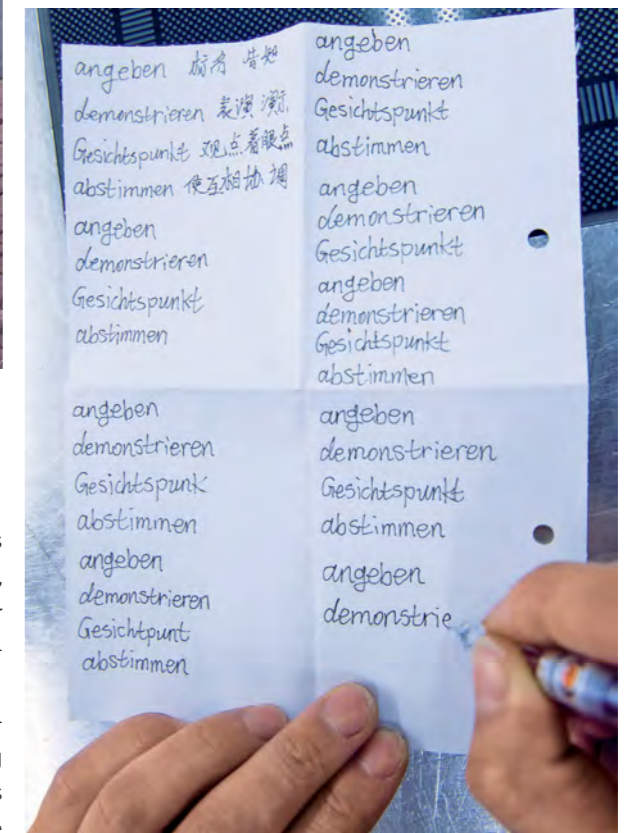 angeben 标为 告知
demonstrieren 表演 演示
Gesichtspunkt 观点着眼点
abstimmen 使互相协调
angeben
demonstrieren
Gesichtspunkt
abstimmen
angeben
demonstrieren
Gesichtspunk
abstimmen
angeben
demonstrieren
Gesichtpunt
abstimmen
angeben
demonstrieren
Gesichtspunkt
abstimmen
angeben
demonstrieren
Gesichtspunkt
angeben
demonstrieren
Gesichtspunkt
abstimmen
angeben
demonstrieren
Gesichtspunkt
abstimmen
angeben
demonstrie